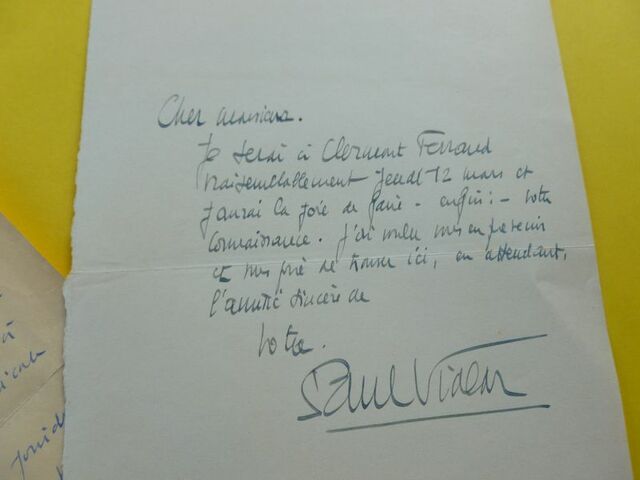 Cher monsieur.
Je serai à Clermont Ferrand
vraisemblablement jeudi 12 mars et
j'aurai la joie de faire - enfin! - votre
connaissance. J'ai voulu vous en prévenir
et vous prie de trouver ici, en attendant,
l'amitié sincère de
Votre.
Paul Vialar
à